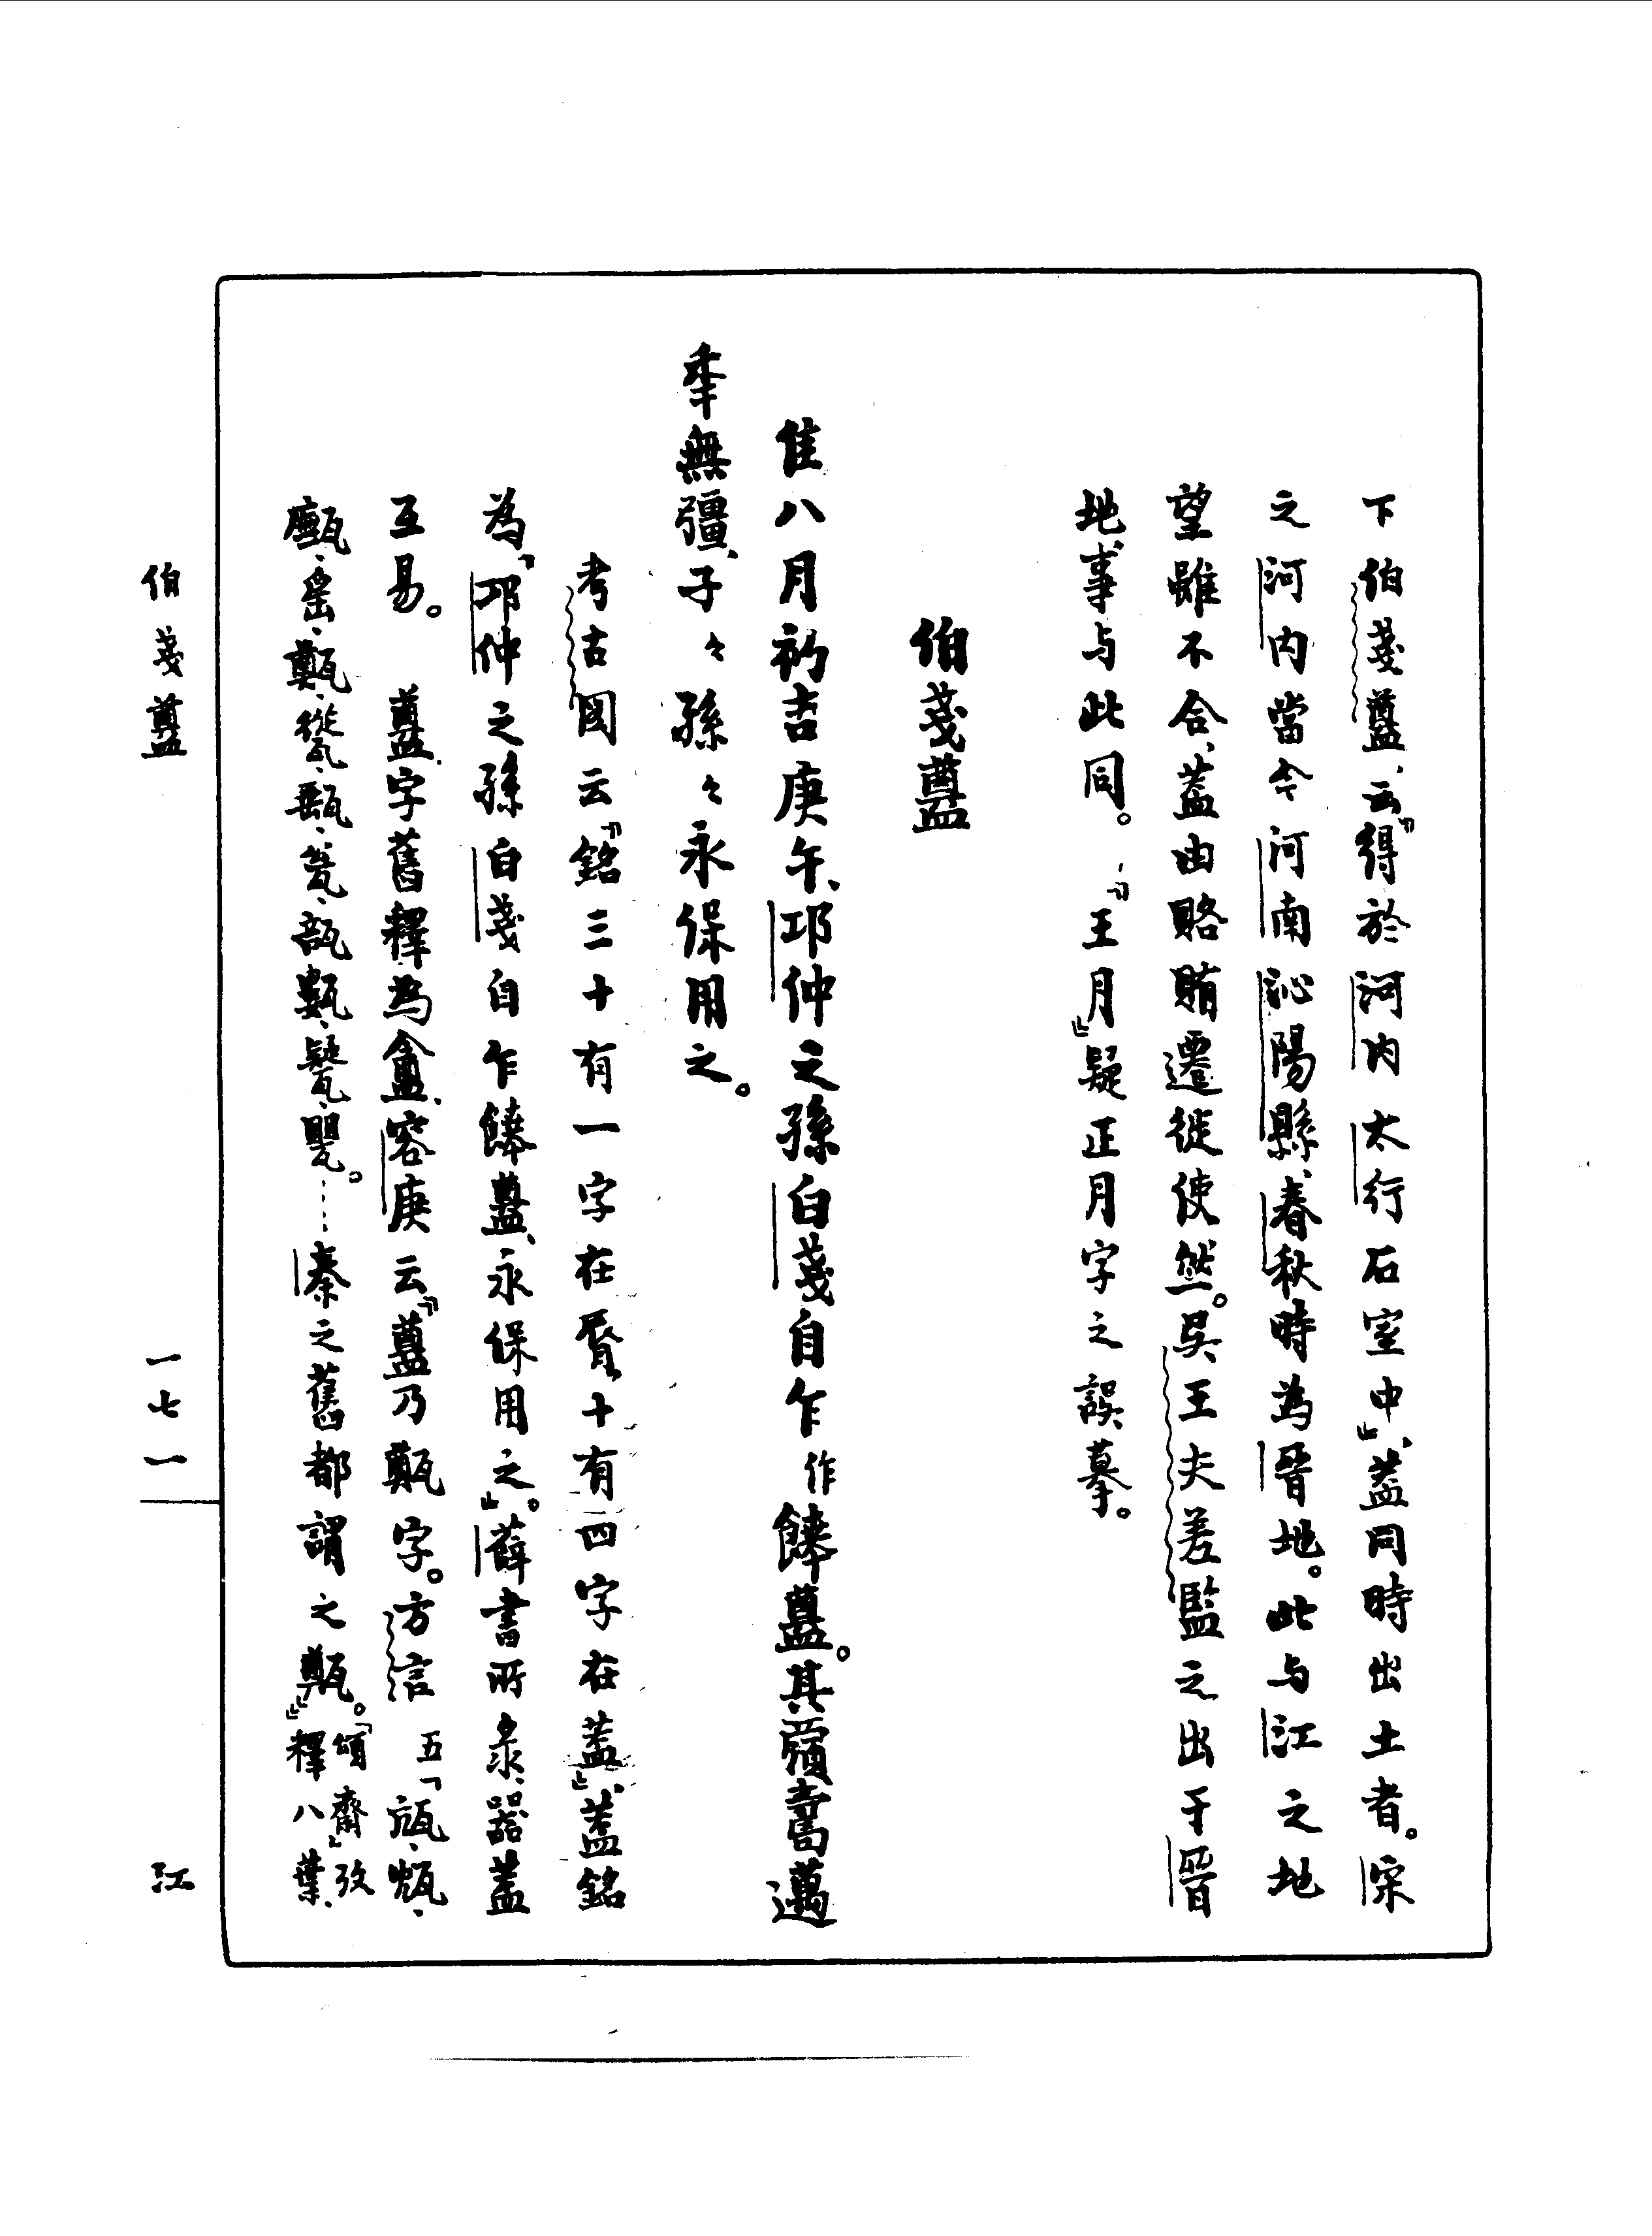 下伯戔𥂴、云『得於河内太行石室中』、蓋同時出土者。宋
之河内當今河南沁陽縣、春秋時為晉地。此与江之地
望雖不合、蓋由賂賄遷徙使然。吳王夫差監之出于晉
地、事与此同。『王月』疑正月字之誤摹。
伯戔𥂴
隹八月初吉庚午、邛仲之孫白戔自乍作餴𥂴。其𩕢壽萬
年無彊、子〻孫〻永保用之。
考古図云『銘三十有一字在脣十有四字在蓋』、蓋銘
為『邛仲之孫白戔自乍餴𥂴、永保用之。』薛書所彔、器蓋
互易。𥂴字舊釋為盦、容庚云『𥂴乃甂字。方言五「㼚、㼜、
甒、䍃、甊、瓮、瓿、甖。……秦之舊都謂之甂。』「頌齋」攷釋八葉、
伯戔𥂴
一七一
江